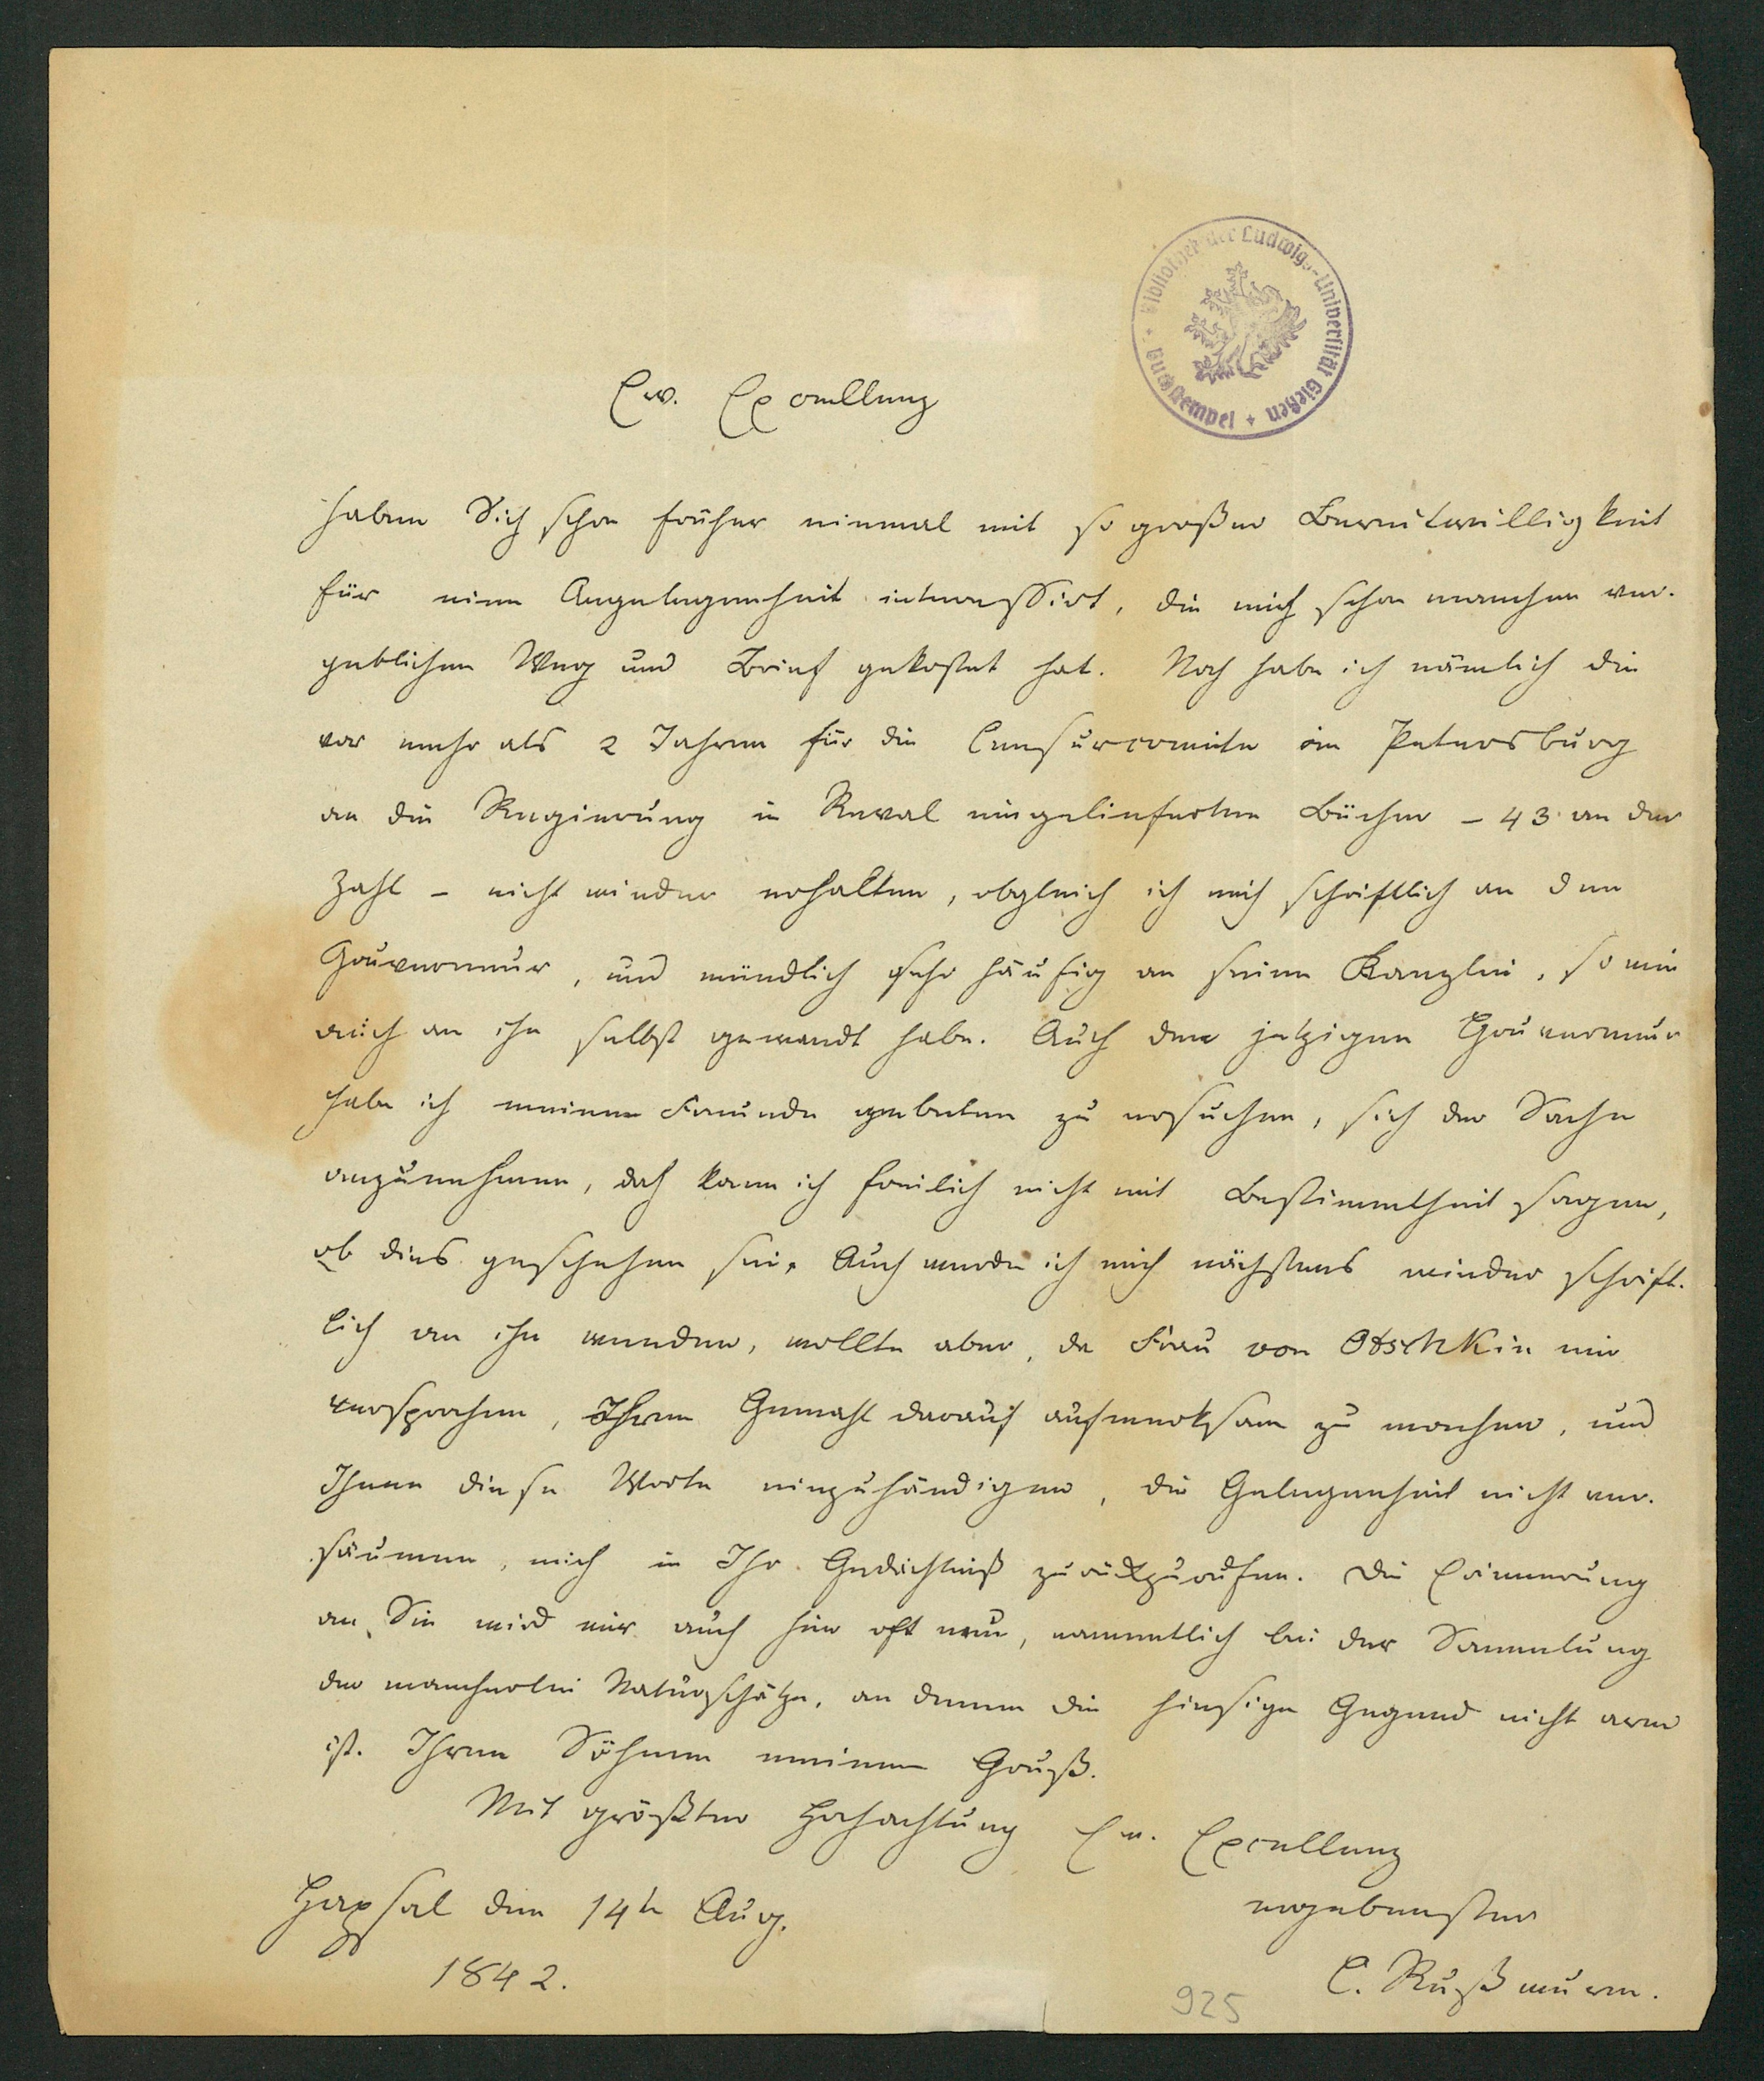 Bibliothek der Ludwigs-Universität Gießen
+ Buchstempel +
Ew. Excellenz
haben Sich schon früher einmal mit so großer Bereitwilligkeit
für eine Angelegenheit interessirt, die mich schon manchen ver-
geblichen Weg und Brief gekostet hat. Noch habe ich nämlich die
vor mehr als 2 Jahren für die Censurcomite in Petersburg
an die Regierung in Reval eingelieferten Bücher – 43 an der
Zahl – nicht wieder erhalten, obgleich ich mich schriftlich an den
Gouverneur, und mündlich sehr häufig an seine Kanzlei, so wie
auch an ihn selbst gewandt habe. Auch den jetzigen Gouverneur
habe ich meine Freunde gebeten zu ersuchen, sich der Sache
anzunehmen, doch kann ich freilich nicht mit Bestimmtheit sagen,
ob dies geschehen sei. Auch werde ich mich nächstens wieder schrift-
lich an ihn wenden, wollte aber, da Frau von Otschkin mir
versprochen, Ihren Gemahl darauf aufmerksam zu machen, und
Ihnen diese Worte einzuhändigen, die Gelegenheit nicht ver-
säumen, mich in Ihr Gedächtniß zurückzurufen. Die Erinnerung
an Sie wird mir auch hier oft neu, namentlich bei der Sammlung
der mancherlei Naturschätze, an denen die hiesige Gegend nicht arm
ist. Ihren Söhnen meinen Gruß.
Mit größter Hochachtung Ew. Excellenz
Hapsal den 14t Aug. ergebenster
1842. C. Rußwurm.
925